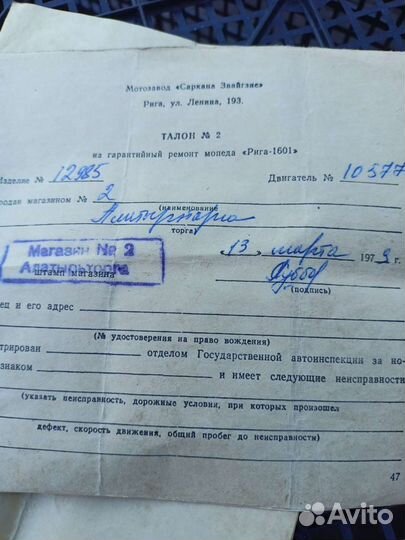 Мотозавод «Саркана Звайгзне»
Рига, ул. Ленина, 193.
ТАЛОН № 2
на гарантийный ремонт мопеда «Рига-1601»
Изделие № 12985 Двигатель № 10577
родан магазином № 2
(наименование
торга)
Магазин № 2
Алатырьторга
штамп магазина
13 марта 1979 г
(подпись)
ец и его адрес
(№ удостоверения на право вождения)
трирован отделом Государственной автоинспекции за но-
знаком и имеет следующие неисправности
(указать неисправность, дорожные условия, при которых произошел
дефект, скорость движения, общий пробег до неисправности)
47
Avito